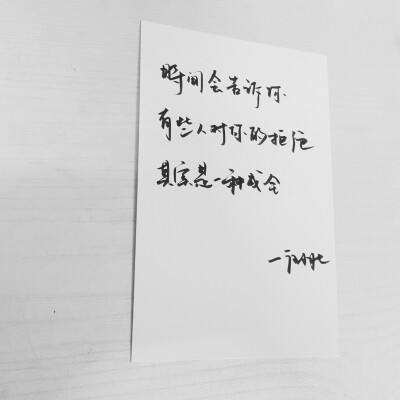 时间会告诉你
有些人对你的拒绝
其实是一种成全